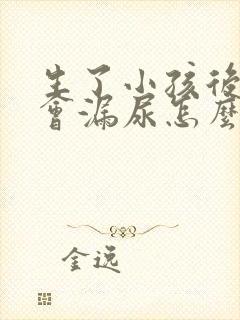 生了小孩後
會漏尿怎麼
金逸